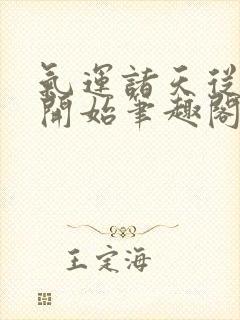 氣運諸天從
開始筆趣閣
王定海